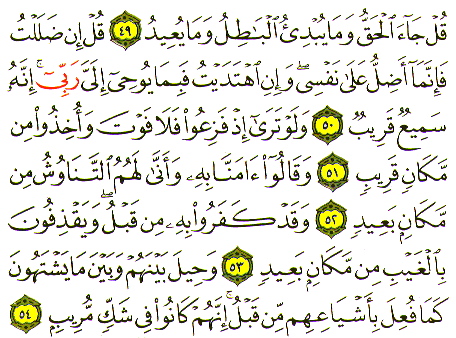 قُلْ جَآءَ ٱلْحَقُّ وَمَا يُبْدِئُ ٱلْبَٰطِلُ وَمَا يُعِيدُ ٤٩ قُلْ إِن ضَلَلْتُ
فَإِنَّمَآ أَضِلُّ عَلَىٰ نَفْسِى ۖ وَإِنِ ٱهْتَدَيْتُ فَبِمَا يُوحِىٓ إِلَىَّ رَبِّىٓ ۚ إِنَّهُۥ
سَمِيعٌ قَرِيبٌ ٥٠ وَلَوْ تَرَىٰٓ إِذْ فَزِعُوا۟ فَلَا فَوْتَ وَأُخِذُوا۟ مِن
مَّكَانٍ قَرِيبٍ ٥١ وَقَالُوٓا۟ ءَامَنَّا بِهِۦ وَأَنَّىٰ لَهُمُ ٱلتَّنَاوُشُ مِن
مَّكَانٍۭ بَعِيدٍ ٥٢ وَقَدْ كَفَرُوا۟ بِهِۦ مِن قَبْلُ ۖ وَيَقْذِفُونَ
بِٱلْغَيْبِ مِن مَّكَانٍۭ بَعِيدٍ ٥٣ وَحِيلَ بَيْنَهُمْ وَبَيْنَ مَا يَشْتَهُونَ
كَمَا فُعِلَ بِأَشْيَاعِهِم مِّن قَبْلُ ۚ إِنَّهُمْ كَانُوا۟ فِى شَكٍّ مُّرِيبٍۭ ٥٤